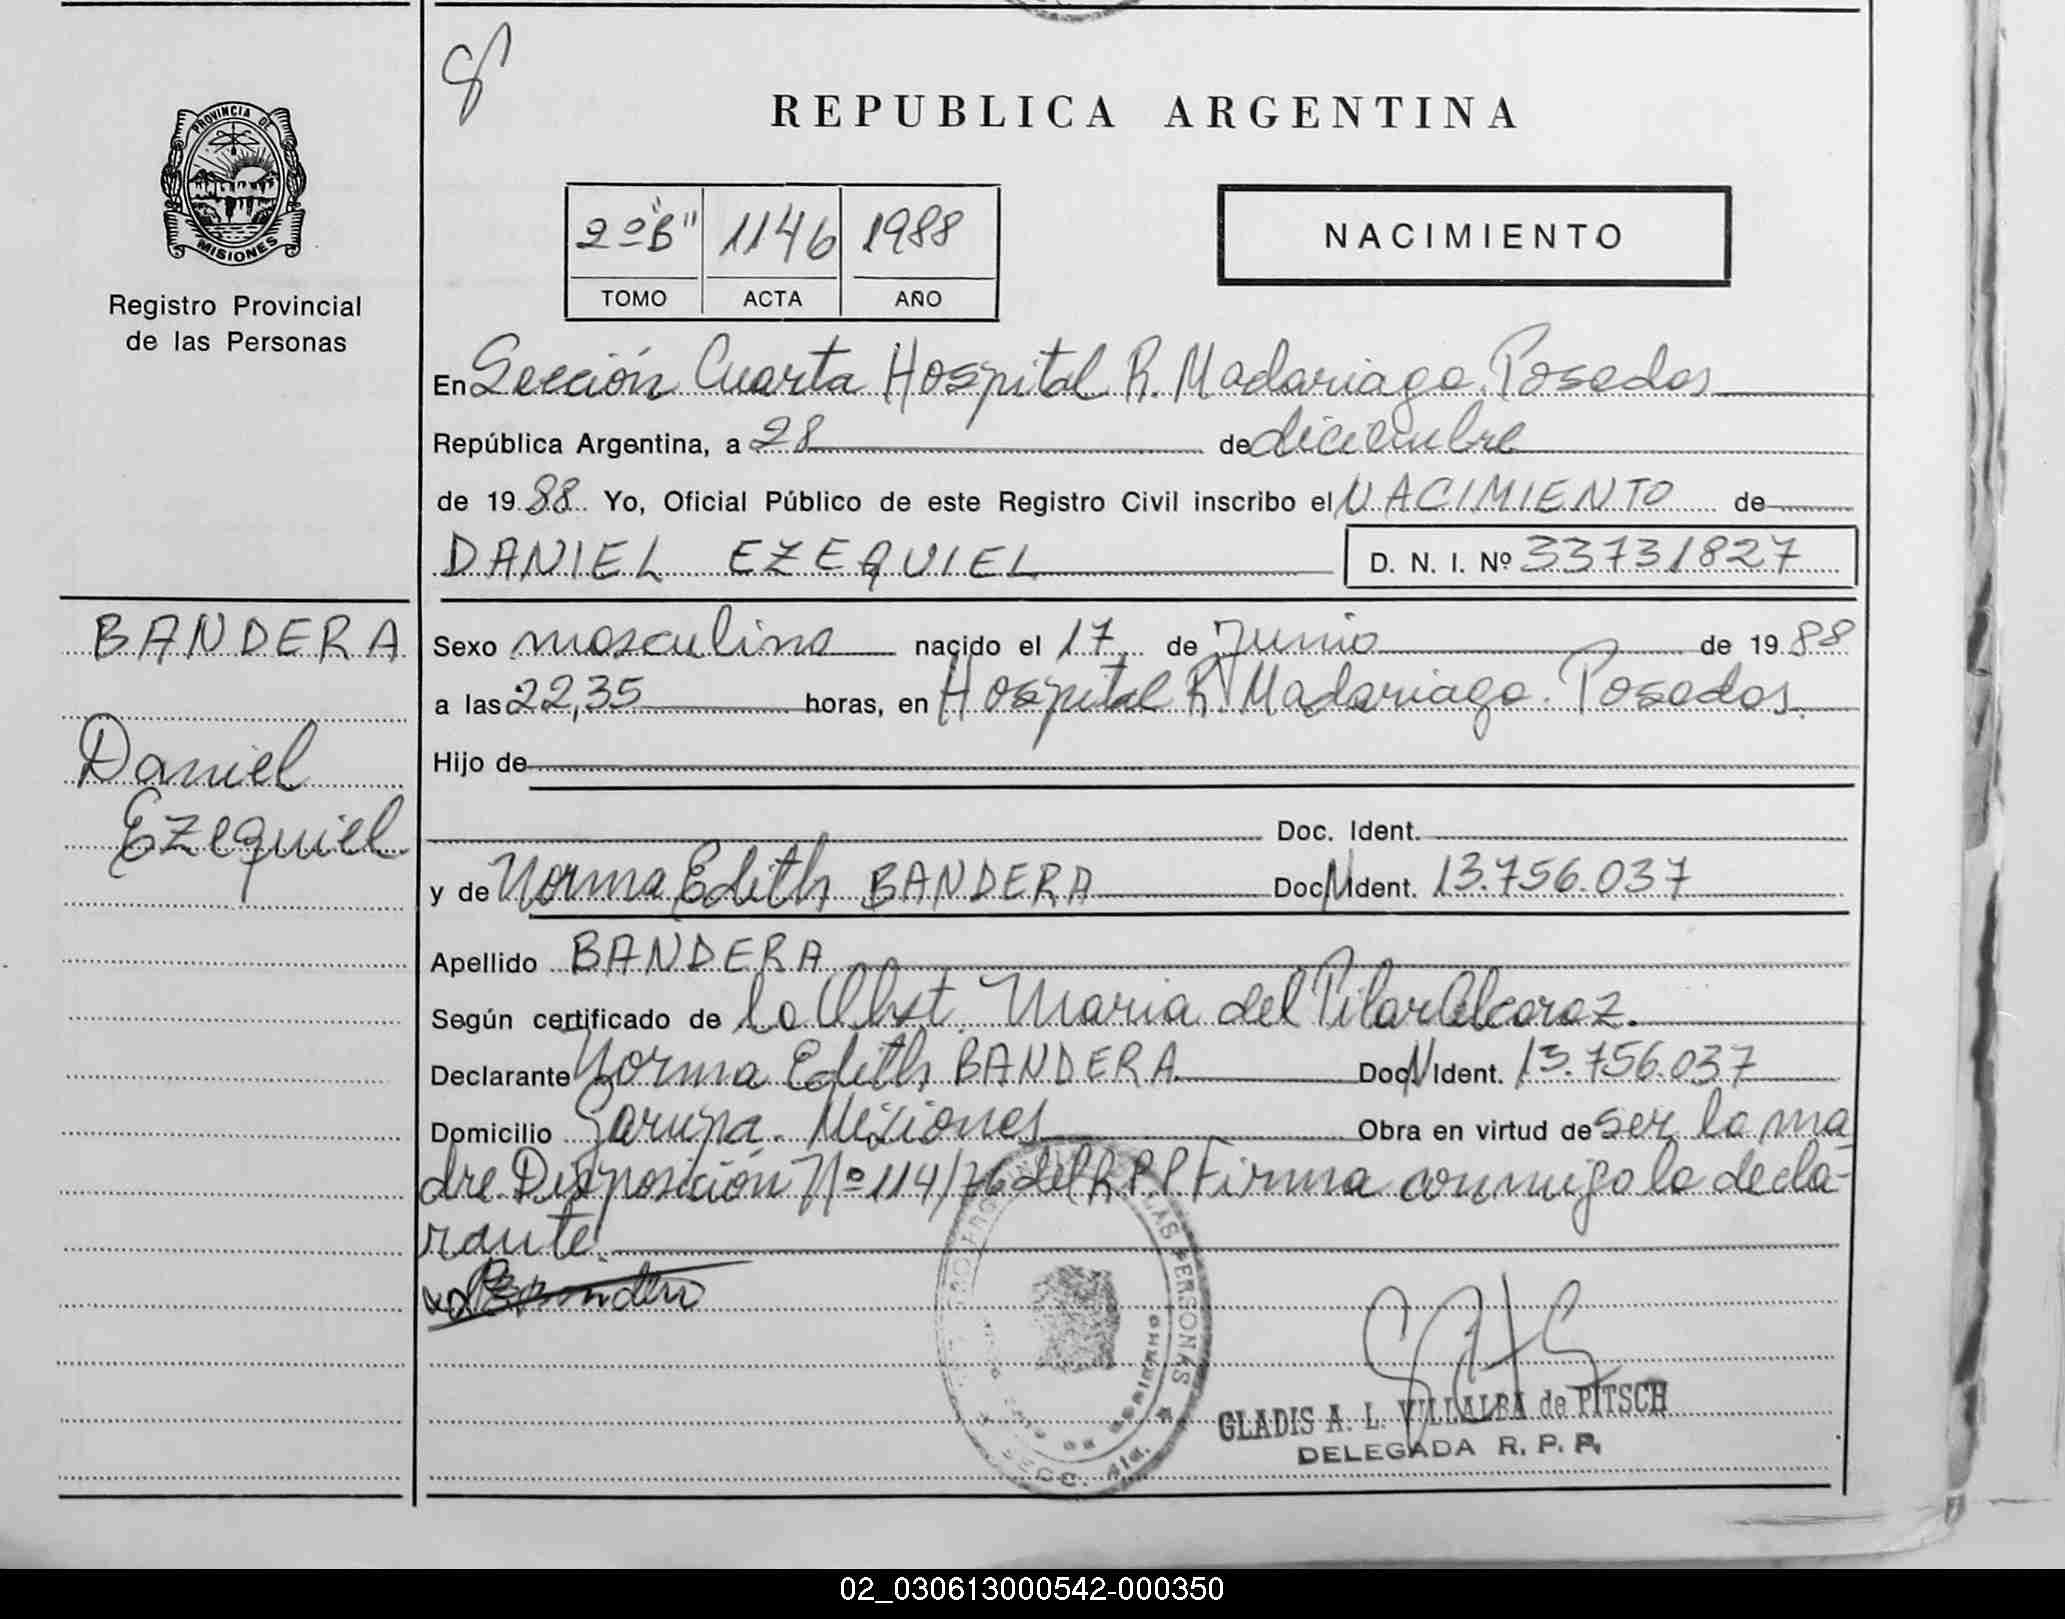 REPUBLICA ARGENTINA
PROVINCIA DE
MISIONES
Registro Provincial
de las Personas
2º "B" 1146 1988
TOMO ACTA AÑO
NACIMIENTO
En Sección Cuarta Hospital R. Madariaga. Posadas
República Argentina, a 28 de diciembre
de 19 88 Yo, Oficial Público de este Registro Civil inscribo el NACIMIENTO de
DANIEL EZEQUIEL D. N. I. Nº 33731827
BANDERA
Daniel
Ezequiel
Sexo masculino nacido el 17 de Junio de 19 88
a las 22,35 horas, en Hospital R. Madariaga. Posadas.
Hijo de
Doc. Ident.
y de Norma Edith BANDERA Doc. N Ident. 13.756.037
Apellido BANDERA
Según certificado de la Obst. Maria del Pilar Alcaraz.
Declarante Norma Edith BANDERA Doc N Ident. 13.756.037
Domicilio Garupá. Misiones Obra en virtud de ser la ma
dre Disposición Nº 114/76 del R.P.P Firma conmigo la decla-
rante.
LAS PERSONAS
SECC. 4ta.
GLADIS A. L. VILLALBA de PITSCH
DELEGADA R. P. P.
02_030613000542-000350